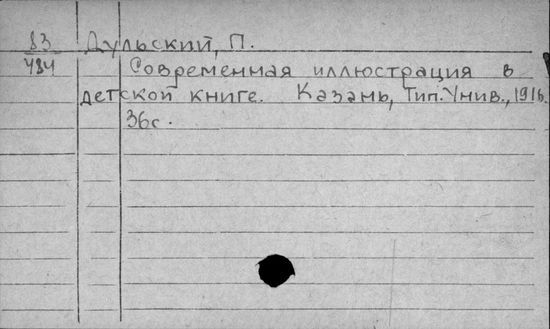 83 Дульский, П.
484 Современная иллюстрация в
детской книге. Казань, Тип. Унив., 1916.
36с.